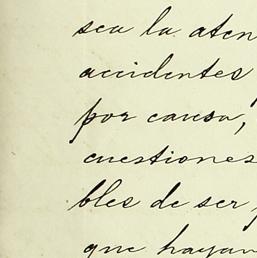 sea la aten
accidentes
por causa,
cuestiones
bles de ser
que hayan